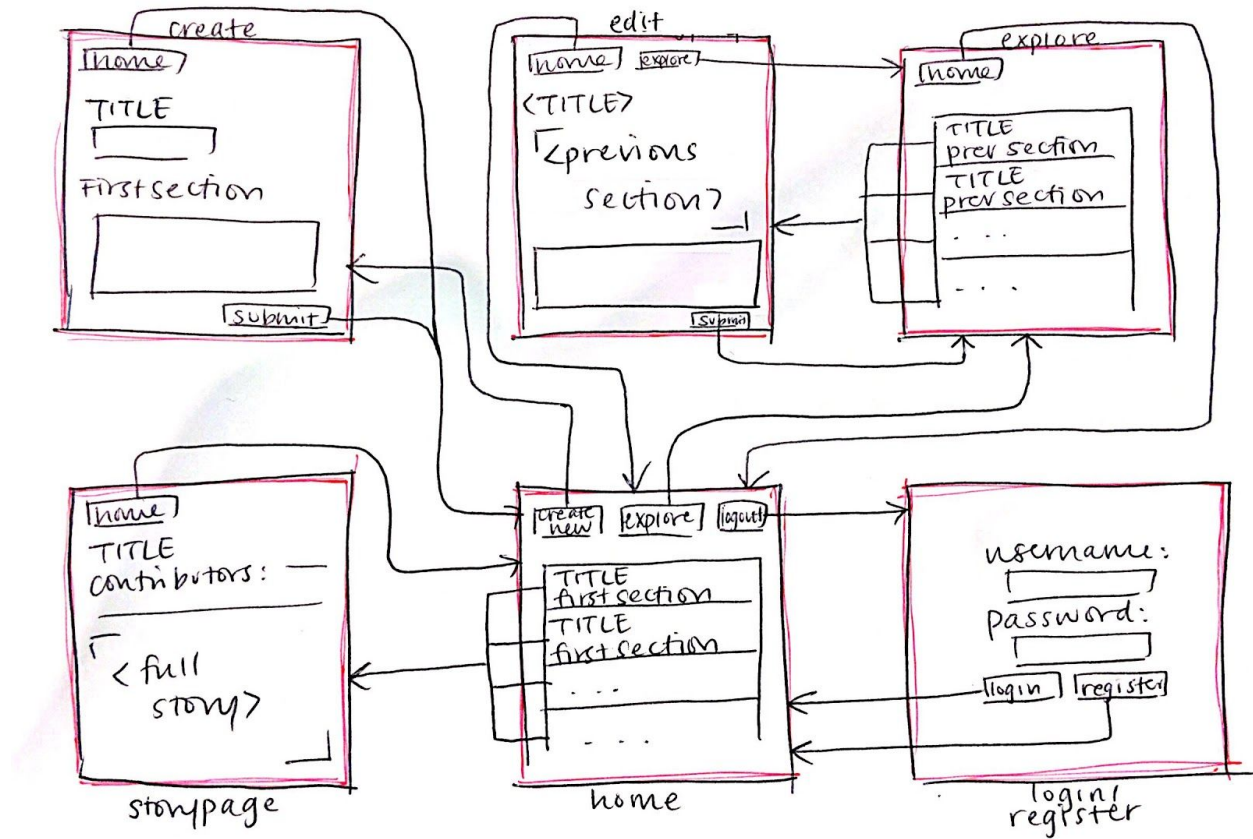 create
home
TITLE
First section
submit
edit
home explore
<TITLE>
<previous
section>
submit
explore
home
TITLE
prev section
TITLE
prev section
. . .
. . .
home
TITLE
contributors:
<full
story>
storypage
create
new
explore
logout
TITLE
first section
TITLE
first section
. . .
. . .
home
username:
password:
login register
login/
register